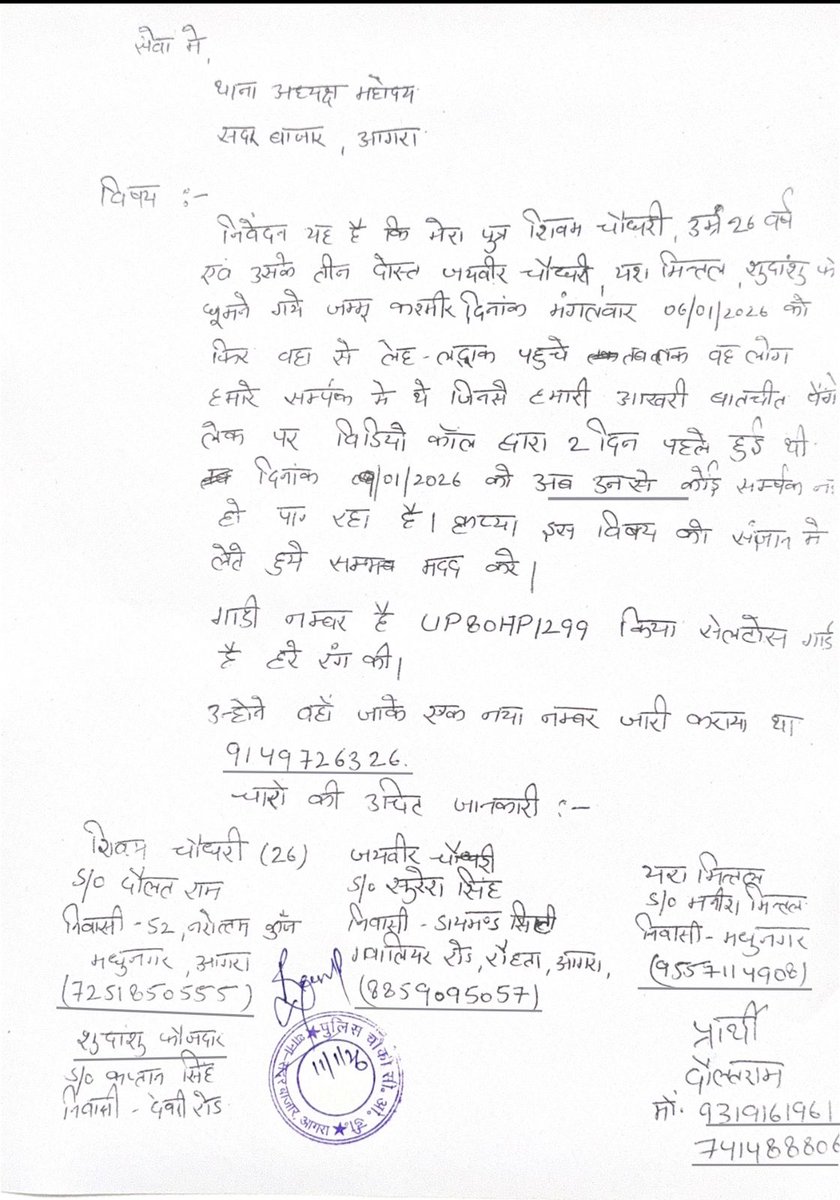 सेवा मे,
थाना अध्यक्ष महोदय
सदर बाजार, आगरा
विषय :-
निवेदन यह है कि मेरा पुत्र शिवम चौधरी, उम्र 26 वर्ष
एवं उसके तीन दोस्त जयवीर चौधरी, यश मित्तल, शुदांशु फौ
घूमने गये जम्मू कश्मीर दिनांक मंगलवार 06/01/2026 को
फिर वहा से लेह-लद्दाक पहुचे तबतक वह लोग
हमारे सर्म्पक मे थे जिनसे हमारी आखरी बातचीत पेंगे
लेक पर विडियो कॉल द्वारा 2 दिन पहले हुई थी
दिनांक 09/01/2026 को अब उनसे कोई सर्म्पक न
हो पा रहा है। कृप्या इस विषय को संज्ञान मे
लेते हुये सम्भव मदद करे।
गाडी नम्बर है UP80HP1299 किया सेलटोस गाड
है हरे रंग की।
उन्होने वहाँ जाके एक नया नम्बर जारी कराया था
9149726326.
चारो की उचित जानकारी :-
शिवम चौधरी (26)
S/o दौलत राम
निवासी - 52, नरोत्तम कुँज
मधुनगर, आगरा
(7251850555)
जयवीर चौधरी
S/o सुरेश सिंह
निवासी - डायमण्ड सिटी
ग्वालियर रोड, रोहता, आगरा,
(8859095057)
यश मित्तल
S/o मनीश मित्तल
निवासी - मधुनगर
(9557114908)
शुदांशु फौजदार
S/o कप्तान सिंह
निवासी - देवरी रोड
पुलिस चौकी सी. ओ. डी.
थाना-सदर बाजार, आगरा
11/1/26
प्रार्थी
दौलतराम
मो. 9319161961
741488806